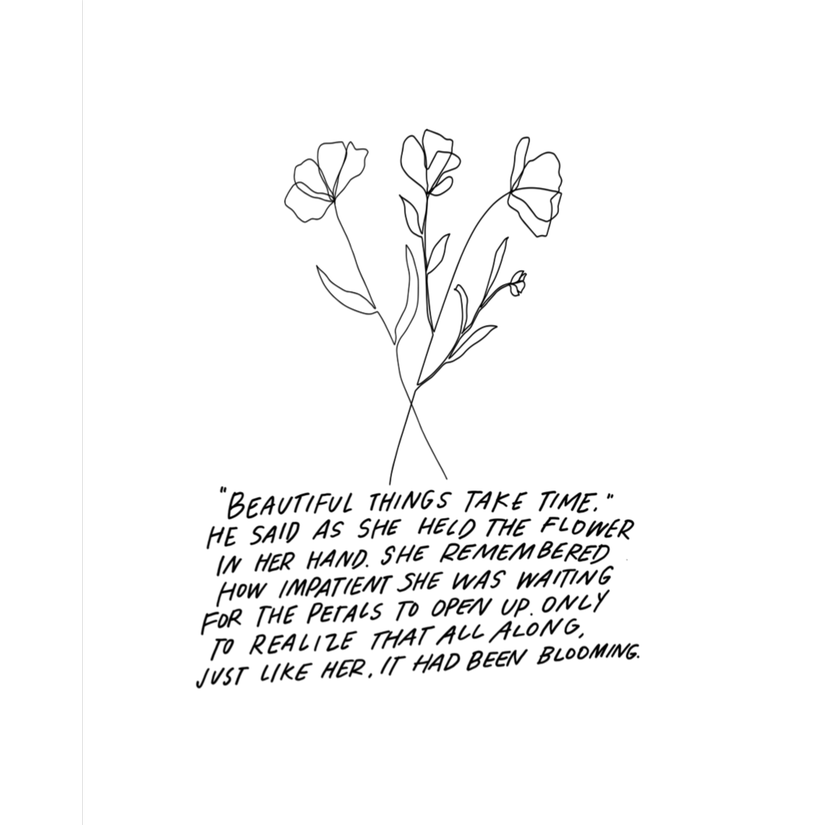 "BEAUTIFUL THINGS TAKE TIME."
HE SAID AS SHE HELD THE FLOWER
IN HER HAND. SHE REMEMBERED
HOW IMPATIENT SHE WAS WAITING
FOR THE PETALS TO OPEN UP. ONLY
TO REALIZE THAT ALL ALONG,
JUST LIKE HER, IT HAD BEEN BLOOMING.